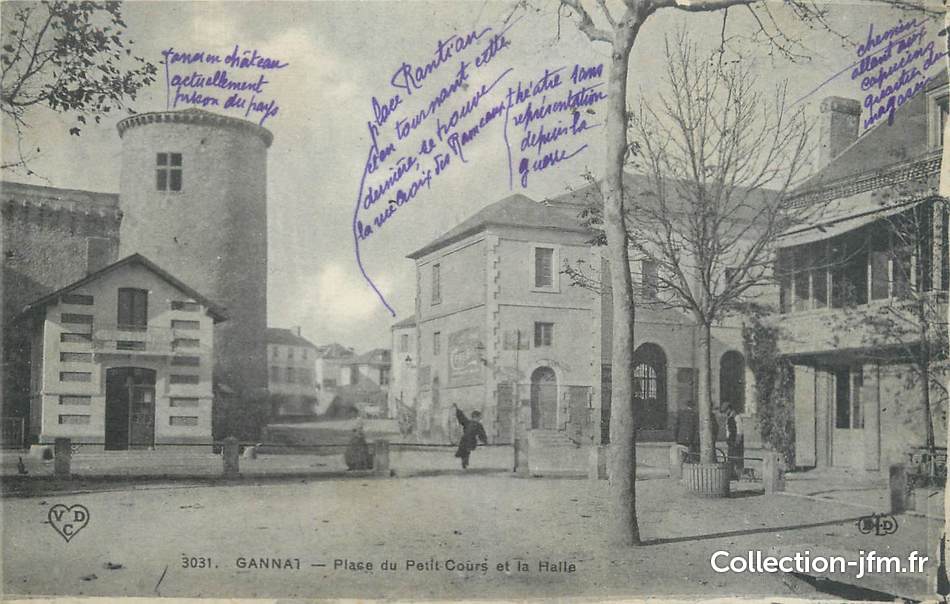 ancien château
actuellement
prison du pays
place Rantian
et en tournant cette
dernière, se trouve
la rue croix des Rameaux
théatre sans
représentation
depuis la
guerre
chemin
allant aux
capucins
quartier du
magasin
VDC
3031. GANNAT — Place du Petit Cours et la Halle
ELD
Collection-jfm.fr